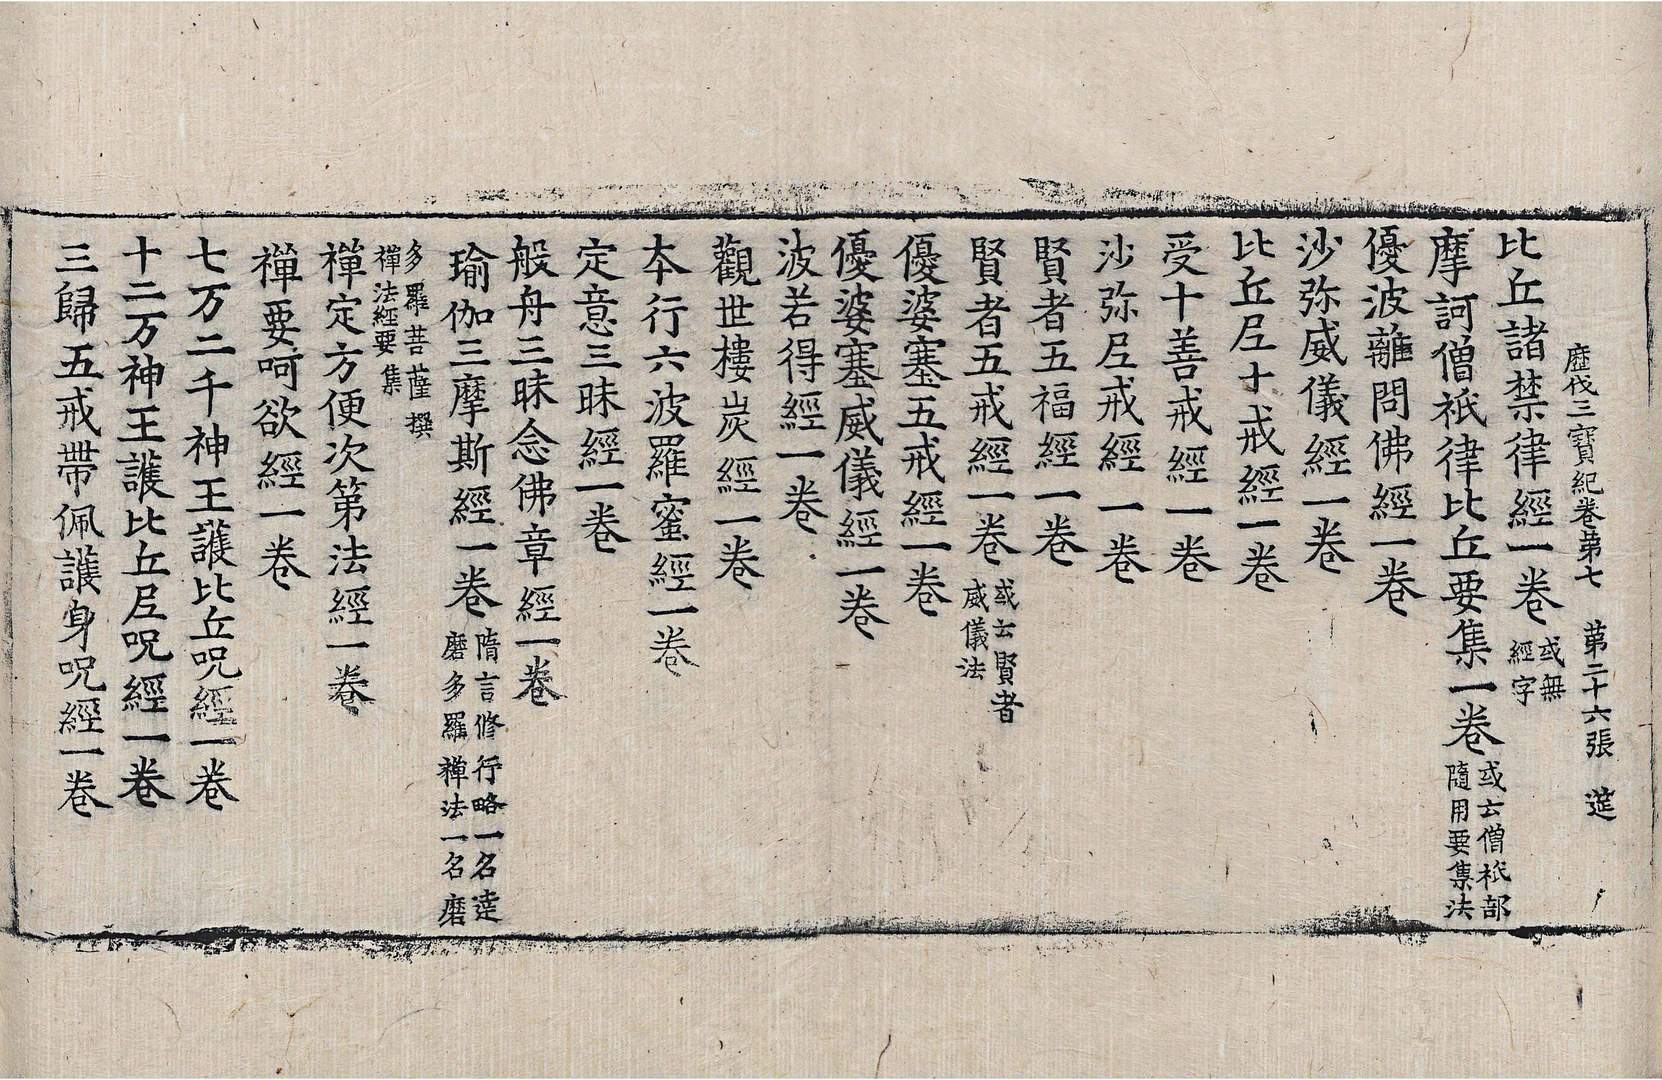 歷伐三寶紀卷第七 第二十六張 莚
比丘諸禁律經一卷 或無經字
摩訶僧祇律比丘要集一卷 或云僧祇部隨用要集法
優波離問佛經一卷
沙弥威儀經一卷
比丘尼十戒經一卷
受十善戒經一卷
沙弥尼戒經一卷
賢者五福經一卷
賢者五戒經一卷 或云賢者威儀法
優婆塞五戒經一卷
優婆塞威儀經一卷
波若得經一卷
觀世樓炭經一卷
本行六波羅蜜經一卷
定意三昧經一卷
般舟三昧念佛章經一卷
瑜伽三摩斯經一卷 隋言修行略一名達磨多羅禪法一名磨
多羅菩薩撰禪法經要集
禪定方便次第法經一卷
禪要呵欲經一卷
七万二千神王護比丘呪經一卷
十二万神王護比丘尼呪經一卷
三歸五戒帶佩護身呪經一卷